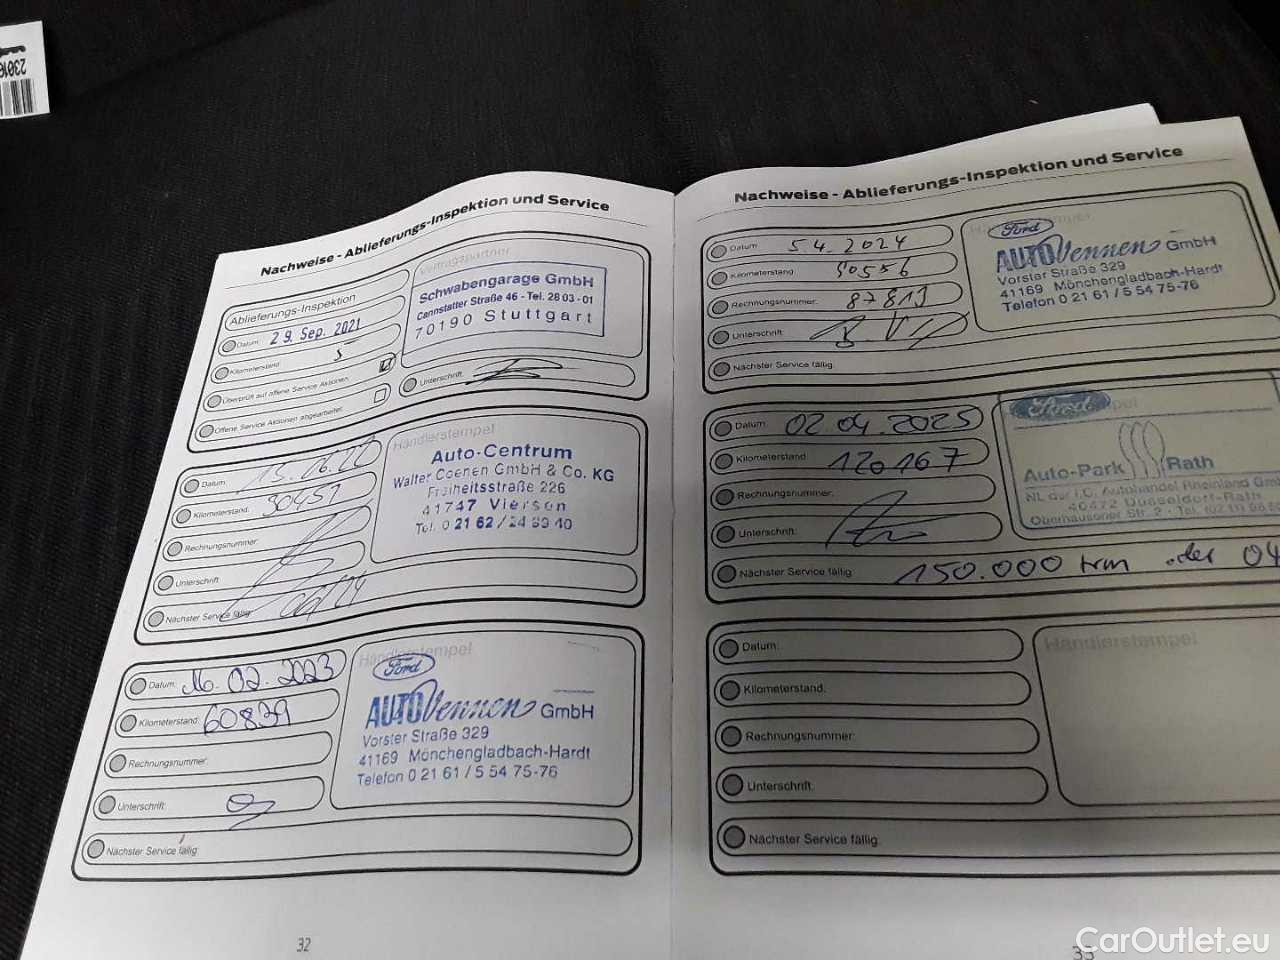 23010
Nachweise - Ablieferungs-Inspektion und Service
Ablieferungs-Inspektion
Datum: 29. Sep. 2021
Kilometerstand: 5
Überprüft auf offene Service Aktionen
Offene Service Aktionen abgearbeitet
Vertragspartner
Schwabengarage GmbH
Cannstatter Straße 46 - Tel. 28 03 - 01
70190 Stuttgart
Unterschrift:
Datum: 15.06.22
Kilometerstand: 30451
Rechnungsnummer:
Unterschrift:
Nächster Service fällig:
Händlerstempel
Auto-Centrum
Walter Coenen GmbH & Co. KG
Freiheitsstraße 226
41747 Viersen
Datum: 16.02.2023
Kilometerstand: 60839
Rechnungsnummer:
Unterschrift:
Nächster Service fällig:
Händlerstempel
Ford
AUTO Vennen GmbH
Vorster Straße 329
41169 Mönchengladbach-Hardt
Telefon 0 21 61 / 5 54 75-76
32
Nachweise - Ablieferungs-Inspektion und Service
Datum: 5.4.2024
Kilometerstand: 90556
Rechnungsnummer: 87819
Unterschrift:
Nächster Service fällig:
Ford
AUTO Vennen GmbH
Vorster Straße 329
41169 Mönchengladbach-Hardt
Telefon 0 21 61 / 5 54 75-76
Datum: 02.04.2025
Kilometerstand: 120167
Rechnungsnummer:
Unterschrift:
Nächster Service fällig: 150.000 km oder 04
Ford
Auto-Park Rath
NL der I.C. Autohandel Rheinland GmbH
40472 Düsseldorf-Rath
Oberhausener Str. 2 - Tel.
Datum:
Kilometerstand:
Rechnungsnummer:
Unterschrift:
Nächster Service fällig:
Händlerstempel
33
CarOutlet.eu